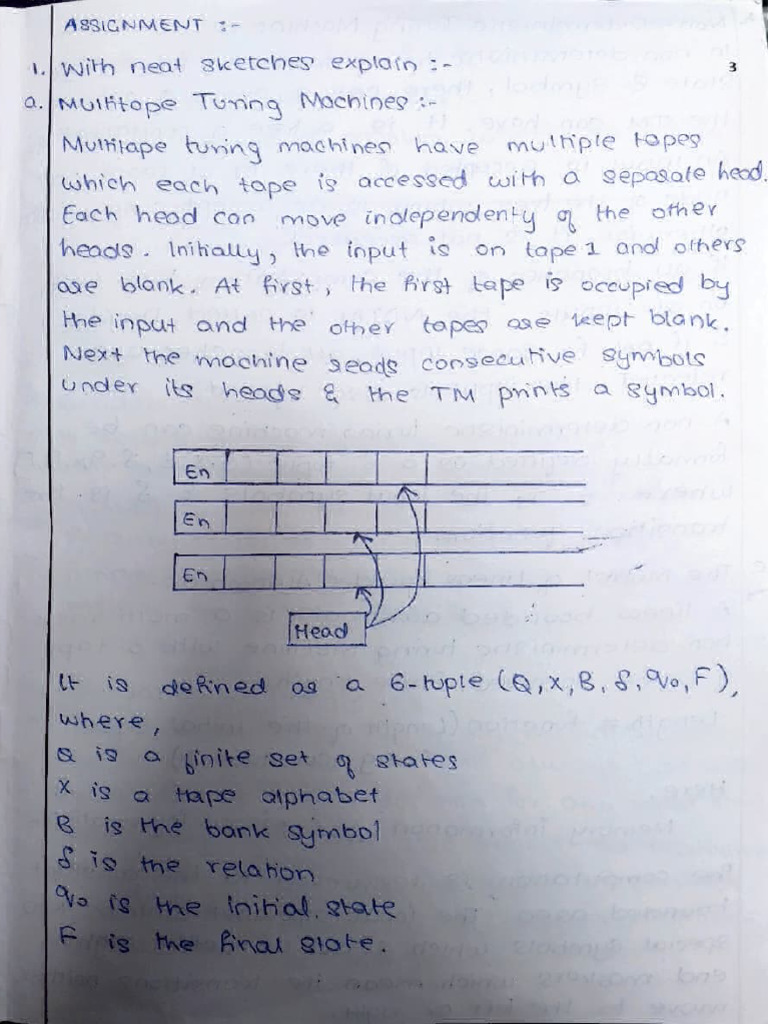 ASSIGNMENT :-
1. With neat sketches explain :-
3
a. Multitape Turing Machines :-
Multitape turing machines have multiple tapes
which each tape is accessed with a separate head.
Each head can move independenty of the other
heads. Initially, the input is on tape 1 and others
are blank. At first, the first tape is occupied by
the input and the other tapes are kept blank.
Next the machine reads consecutive symbols
under its heads & the TM prints a symbol.
En
En
En
Head
It is defined as a 6-tuple (Q, X, B, δ, q₀, F),
where,
Q is a finite set of states
X is a tape alphabet
B is the bank symbol
δ is the relation
q₀ is the initial state
F is the final state.